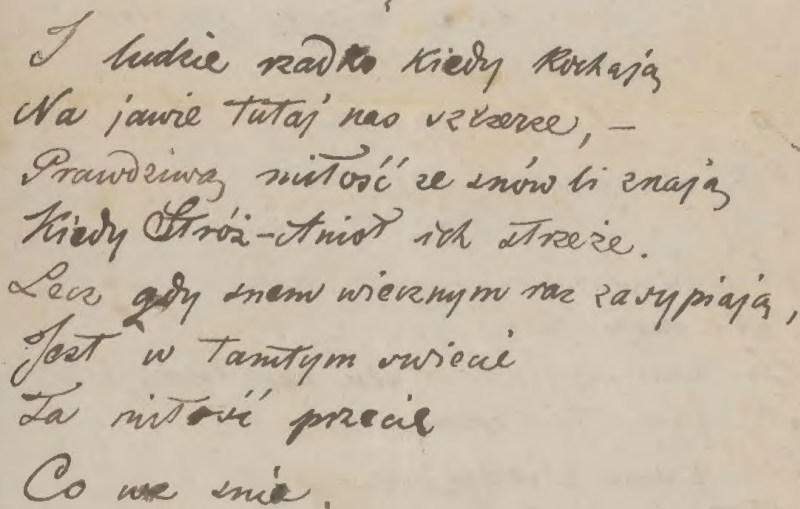 I ludzie rzadko kiedy kochają
Na jawie tutaj nas szczerze, –
Prawdziwą miłość ze snów li znają
Kiedy Stróż-Anioł ich strzeże.
Lecz gdy snem wiecznym raz zasypiają,
Jest w tamtym świecie
Ta miłość przecie
Co we śnie.